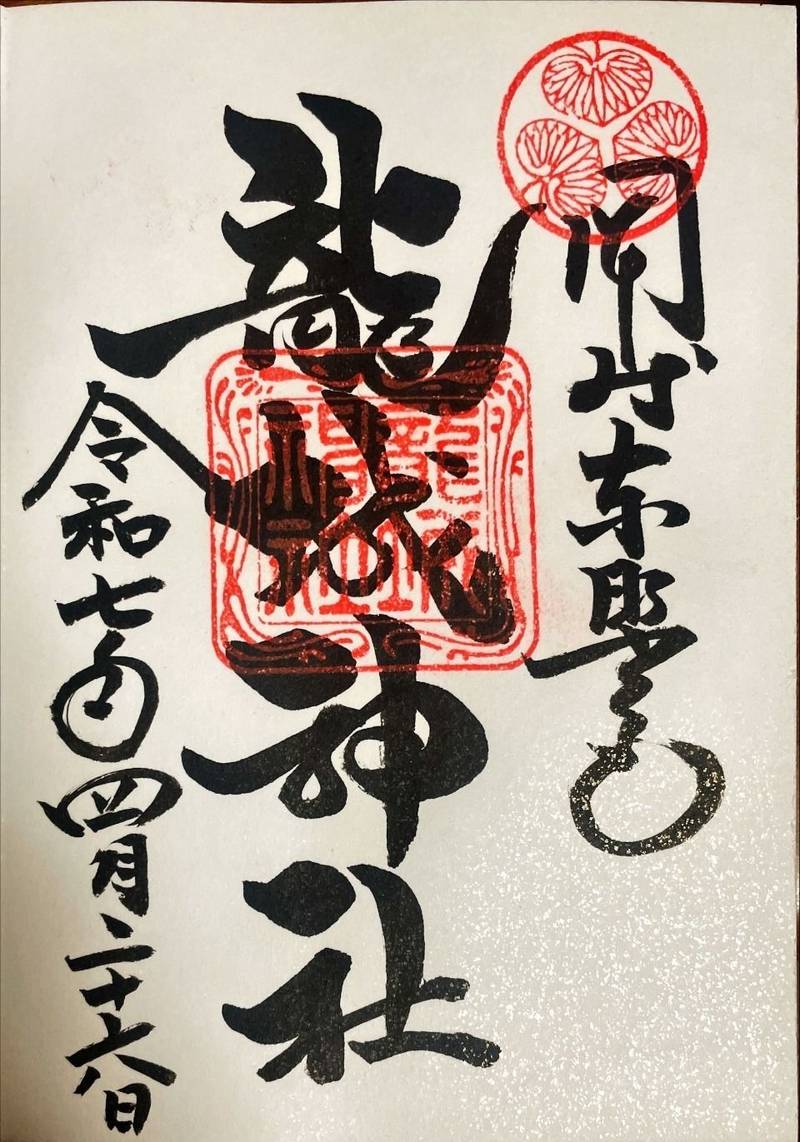 開東照宮
龍城神社
龍城神社
令和七年四月二十六日